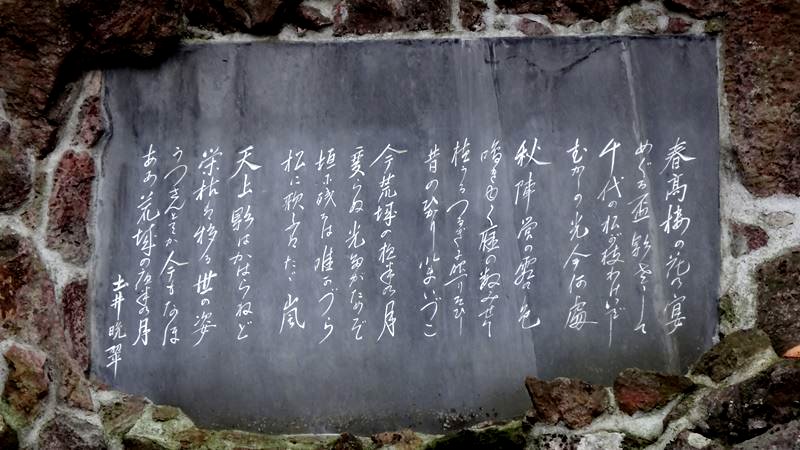 春高楼の花の宴
めぐる盃影さして
千代の松が枝わけいでし
むかしの光今何處
秋陣営の霜の色
鳴きゆく雁の数みせて
植うるつるぎに照りそひし
昔のひかり今いづこ
今荒城の夜半の月
変らぬ光たがためぞ
垣に残るは唯かづら
松に歌ふはたゞ嵐
天上影はかはらねど
栄枯は移る世の姿
うつさんとてか今もなほ
あゝ荒城の夜半の月
土井晩翠